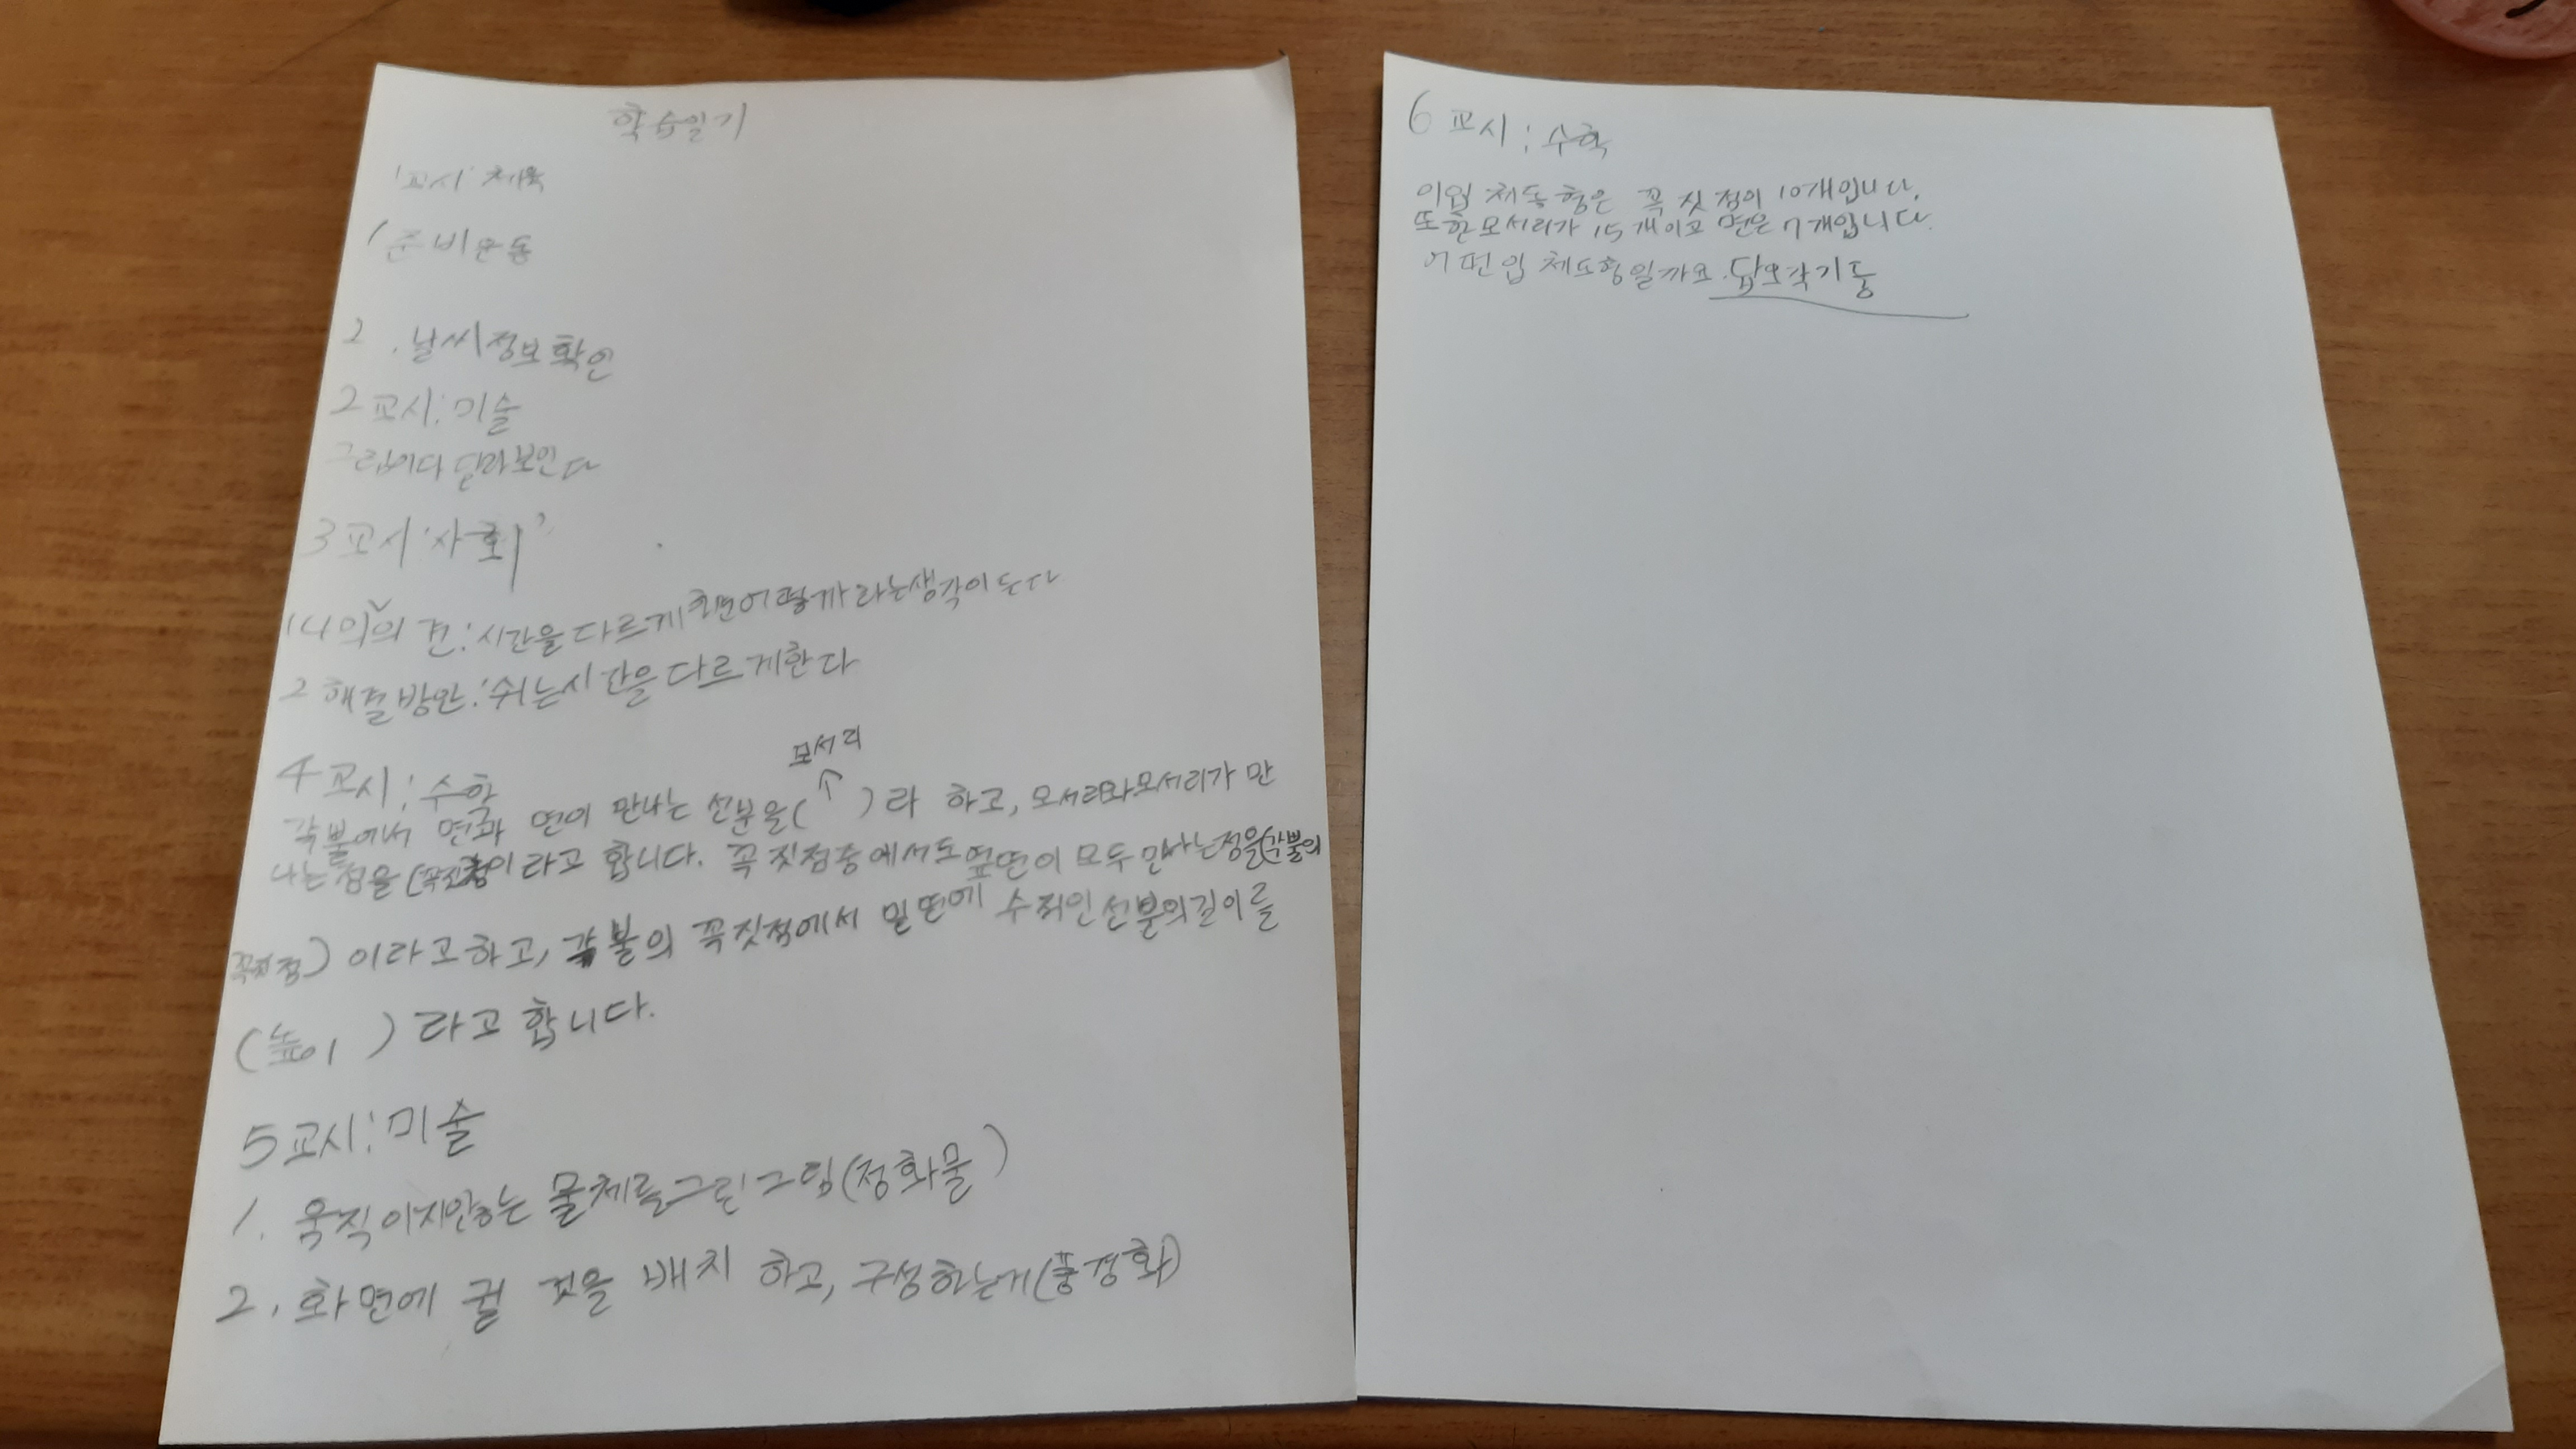 학습일기
1교시 체육
1 준비운동
2 . 날씨정보확인
2교시: 미술
그림이다 달라보인다
3교시 '사회'
1 나의 의견: 시간을 다르게 하면어떻까 라는생각이든다
2 해결방안: 쉬는시간을 다르게한다
4교시: 수학
모서리
각뿔에서 면과 면이 만나는 선분을( ↑ )라 하고, 모서리와모서리가 만
나는 점을 (꼭짓점이라고 합니다. 꼭짓점중에서도옆면이 모두만나는점을(각뿔의
꼭짓점) 이라고하고, 각뿔의 꼭짓점에서 밑면에 수직인선분의길이를
(높이 ) 라고 합니다.
5교시: 미술
1. 움직이지않는 물체를그린그림(정화물 )
2. 화면에 궐 것을 배치 하고, 구성하는거(풍경화)
6교시: 수학
이입체동형은 꼭짓점이 10개입니다.
또한모서리가 15개이고 면은 7개입니다.
어떤입체도형일까요. 답오각기둥